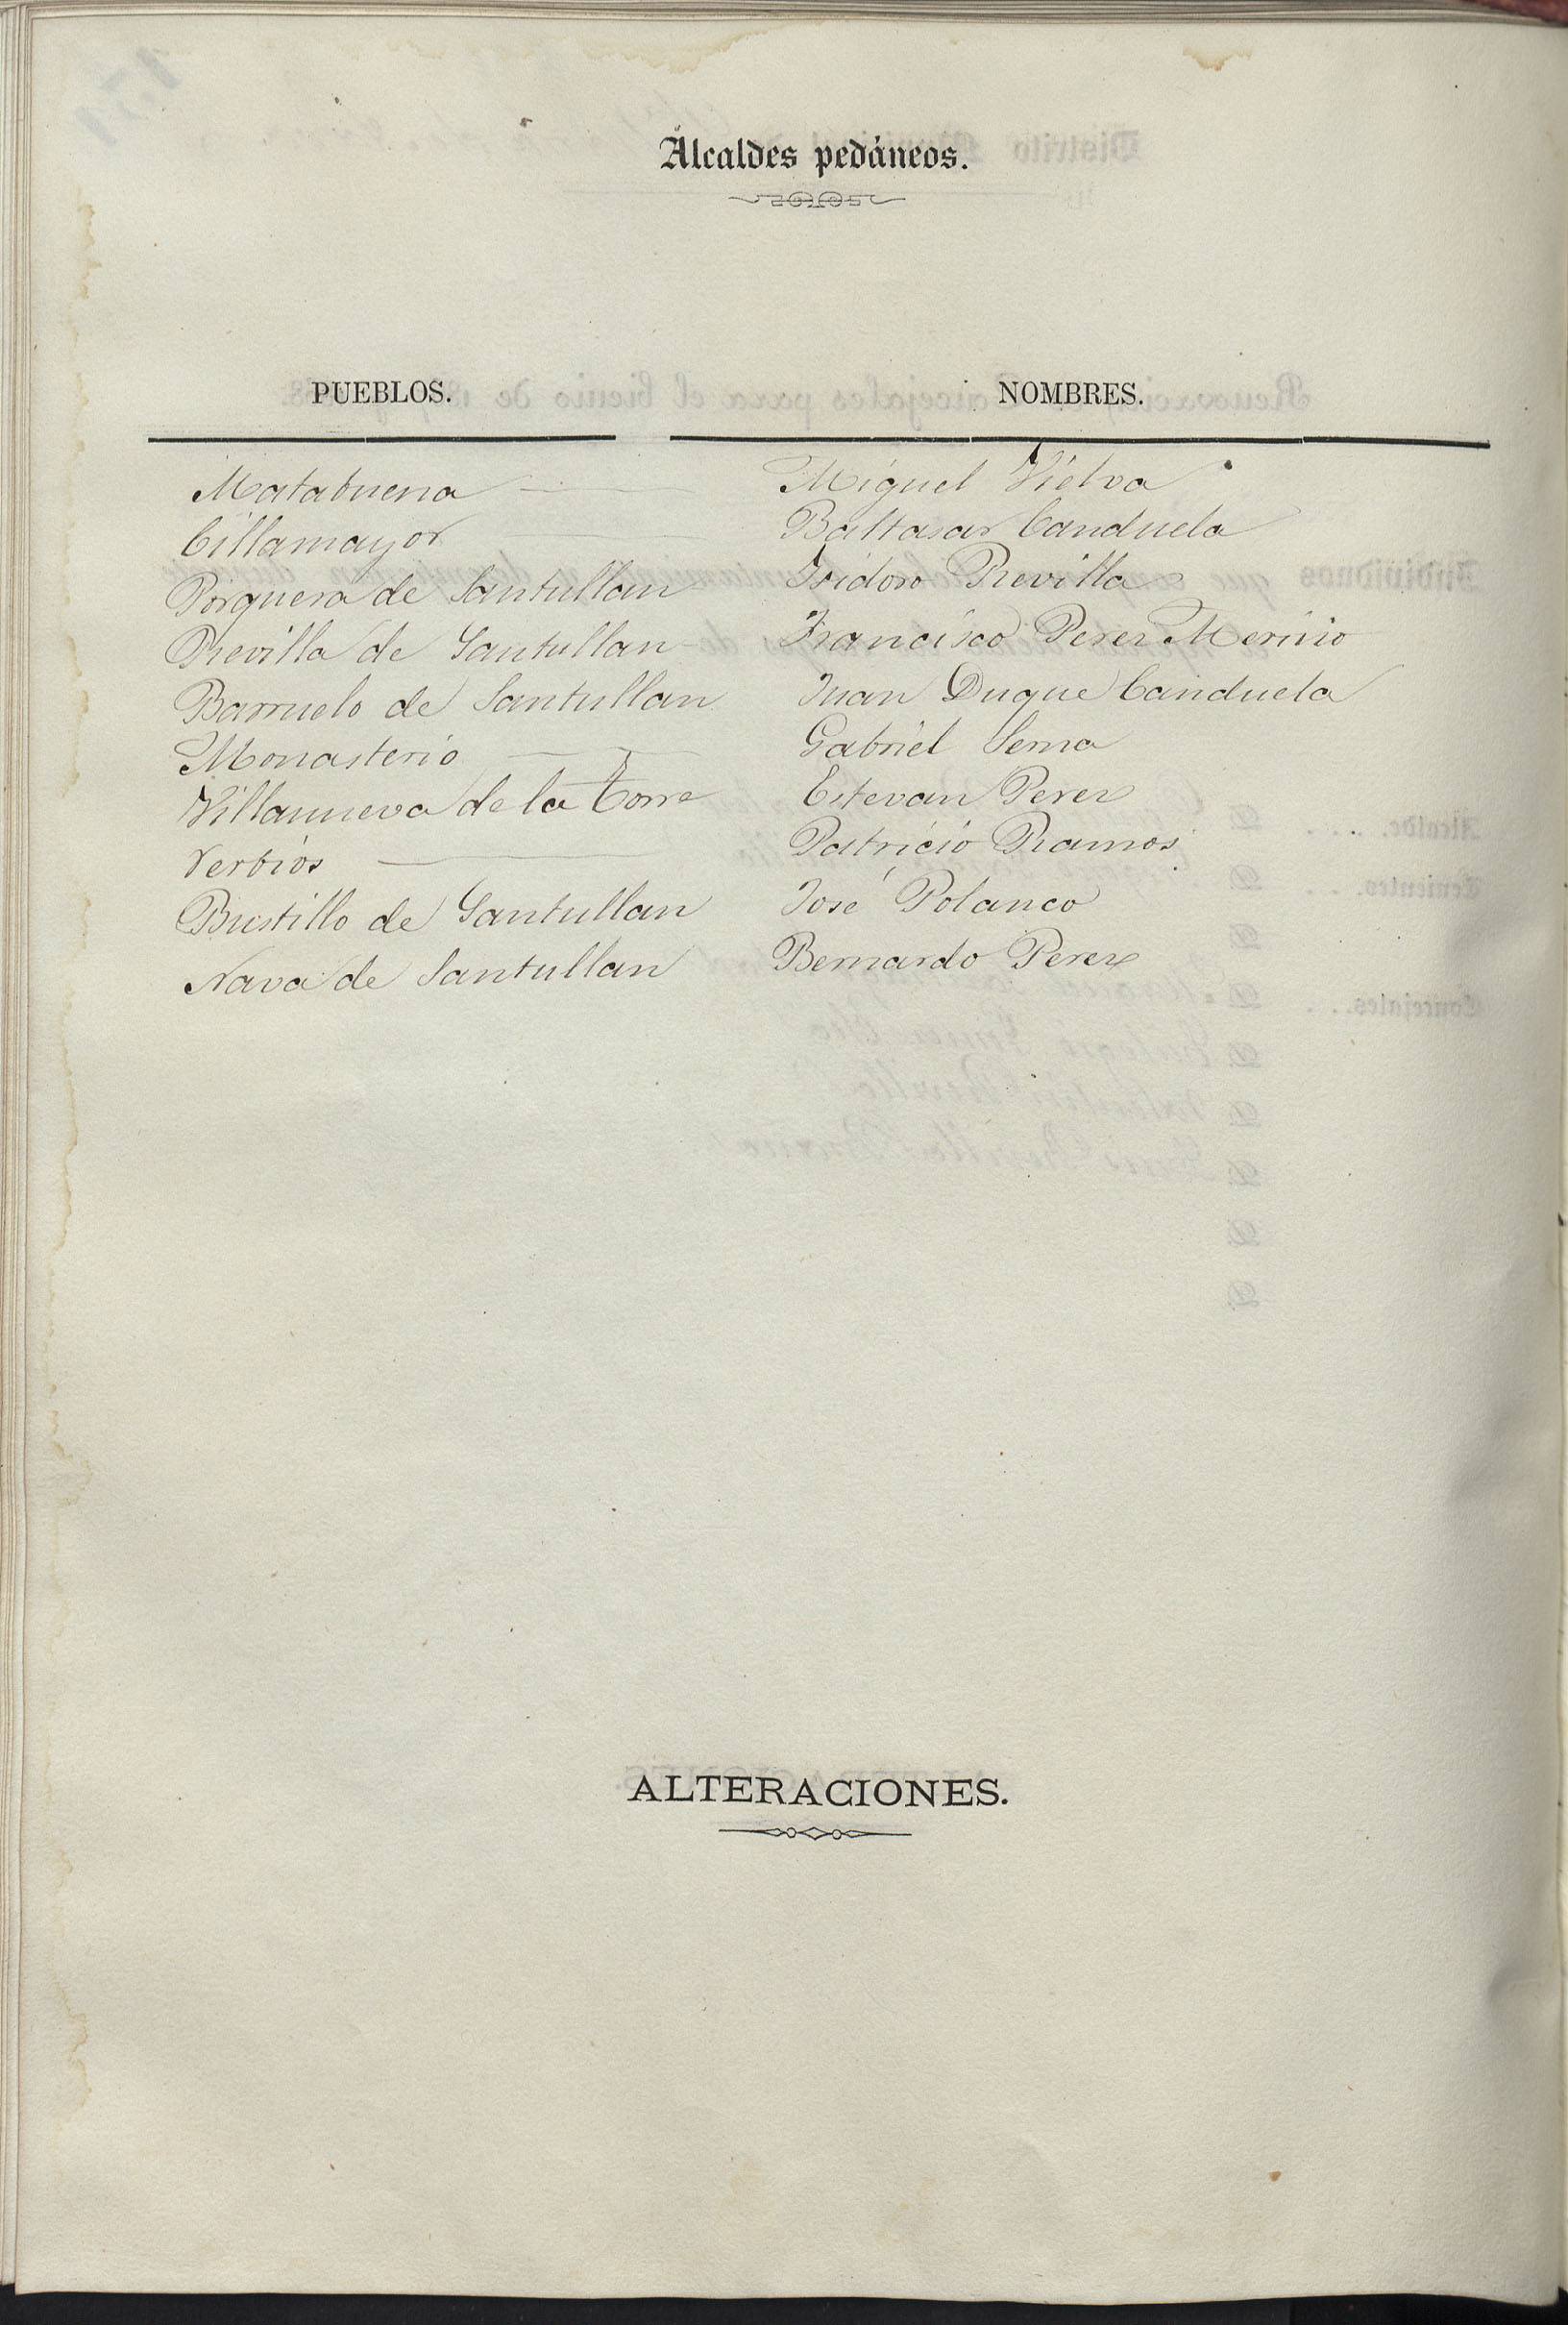 Alcaldes pedáneos.
PUEBLOS. NOMBRES.
Matabuena Miguel Vielva
Cillamayor Baltasar Canduela
Porquera de Santullan Isidoro Revilla
Revilla de Santullan Francisco Perez Merino
Barruelo de Santullan Juan Duque Canduela
Monasterio Gabriel Serna
Villanueva de la Torre Estevan Perez
Verbios Patricio Ramos
Bustillo de Santullan José Polanco
Nava de Santullan Bernardo Perez
ALTERACIONES.